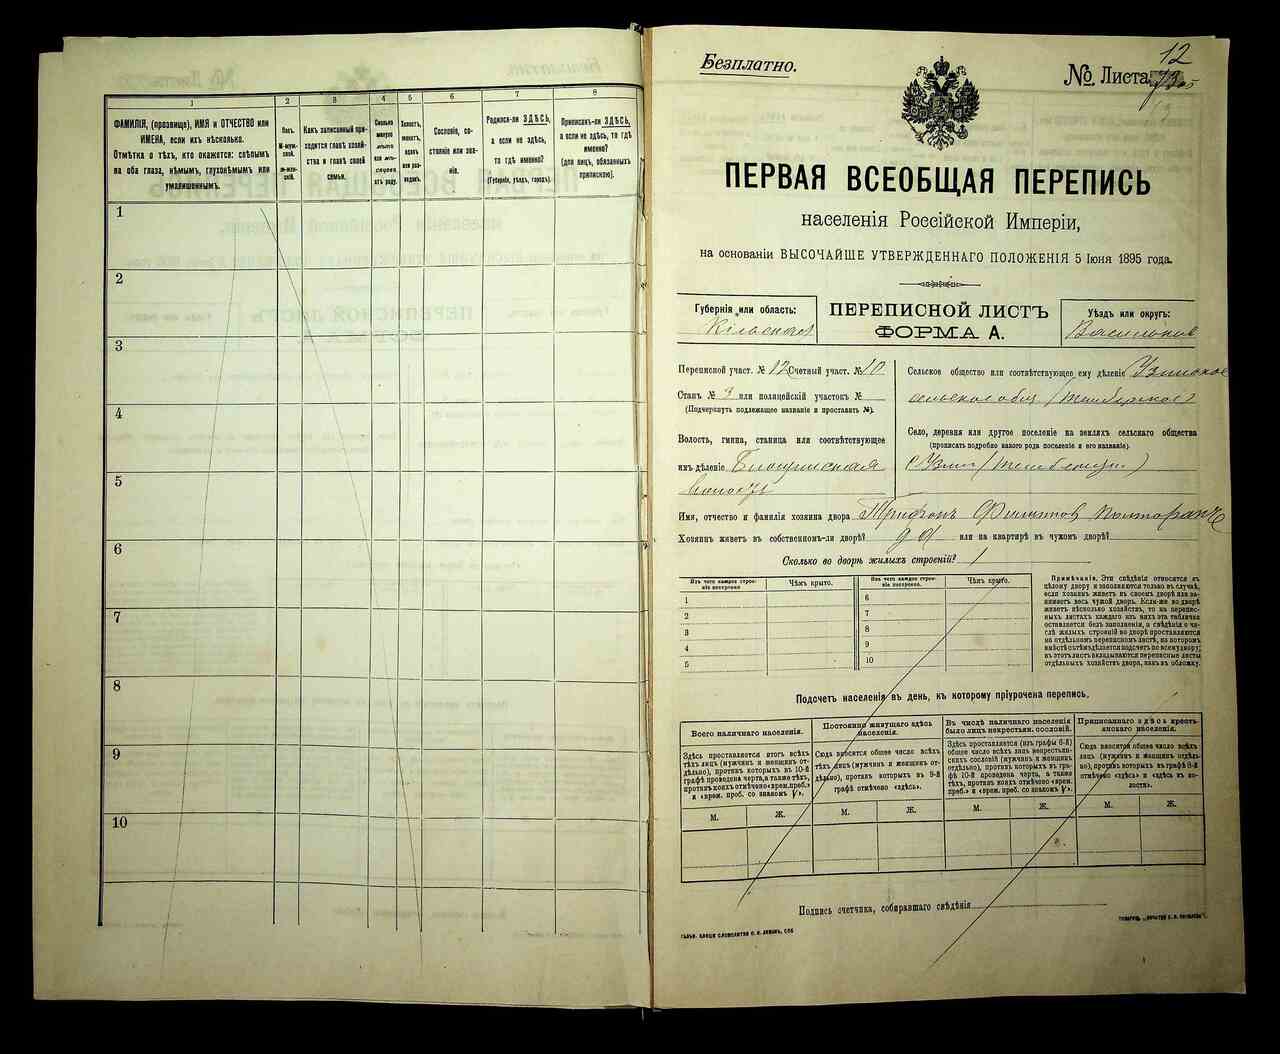 1
2
3
4
5
6
7
8
ФАМИЛІЯ, (прозвище), ИМЯ и ОТЧЕСТВО или
ИМЕНА, если ихъ нѣсколько.
Отмѣтка о тѣхъ, кто окажется: слѣпымъ
на оба глаза, нѣмымъ, глухонѣмымъ или
умалишеннымъ.
Полъ.
М-муж-
ской.
ж-жен-
скій.
Какъ записанный при-
ходится главѣ хозяй-
ства и главѣ своей
семьи.
Сколько
минуло
лѣтъ
или мѣ-
сяцевъ
отъ роду.
Холостъ,
женатъ,
вдовъ
или раз-
веденъ.
Сословіе, со-
стояніе или зва-
ніе.
Родился-ли ЗДѢСЬ,
а если не здѣсь,
то гдѣ именно?
(Губернія, уѣздъ, городъ).
Приписанъ-ли ЗДѢСЬ,
а если не здѣсь, то гдѣ
именно?
(для лицъ, обязанныхъ
припискою).
1
2
3
4
5
6
7
8
9
10
Безплатно.
№ Листа
12
ПЕРВАЯ ВСЕОБЩАЯ ПЕРЕПИСЬ
населенія Россійской Имперіи,
на основаніи ВЫСОЧАЙШЕ УТВЕРЖДЕННАГО ПОЛОЖЕНІЯ 5 Іюня 1895 года.
Губернія или область:
ПЕРЕПИСНОЙ ЛИСТЪ
ФОРМА А.
Уѣздъ или округъ:
Переписной участ. № 12 Счетный участ. № 10
Станъ № 3 или полицейскій участокъ №
(Подчеркнуть подлежащее названіе и проставить №).
Волость, гмина, станица или соотвѣтствующее
имъ дѣленіе
Сельское общество или соотвѣтствующее ему дѣленіе
Село, деревня или другое поселеніе на земляхъ сельскаго общества
(прописать подробно какого рода поселеніе и его названіе).
Имя, отчество и фамилія хозяина двора Трифонъ
Хозяинъ живетъ въ собственномъ-ли дворѣ? да или на квартирѣ въ чужомъ дворѣ?
Сколько во дворѣ жилыхъ строеній? 1
Изъ чего каждое строе-
ніе построено.
Чѣмъ крыто.
Изъ чего каждое строе-
ніе построено.
Чѣмъ крыто.
1
2
3
4
5
6
7
8
9
10
Примѣчаніе. Эти свѣдѣнія относятся къ
цѣлому двору и заполняются только въ случаѣ,
если хозяинъ живетъ въ своемъ дворѣ или за-
нимаетъ весь чужой дворъ. Если-же во дворѣ
живетъ нѣсколько хозяйствъ, то на перепис-
ныхъ листахъ каждаго изъ нихъ эта табличка
оставляется безъ заполненія, а свѣдѣнія о чи-
слѣ жилыхъ строеній во дворѣ проставляются
на отдѣльномъ переписномъ листѣ, на которомъ
вмѣстѣ съ тѣмъ дѣлается подсчетъ по всему двору;
въ этотъ листъ вкладываются переписные листы
отдѣльныхъ хозяйствъ двора, какъ въ обложку.
Подсчетъ населенія въ день, къ которому пріурочена перепись.
Всего наличнаго населенія.
Постоянно живущаго здѣсь
населенія.
Въ числѣ наличнаго населенія
было лицъ некрестьян. сословій.
Приписаннаго здѣсь кресть-
янскаго населенія.
Здѣсь проставляется итогъ всѣхъ
тѣхъ лицъ (мужчинъ и женщинъ от-
дѣльно), противъ которыхъ въ 10-й
графѣ проведена черта, а также тѣхъ,
противъ коихъ отмѣчено «врем. преб.»
и «врем. проб. со знакомъ V».
Сюда вносится общее число всѣхъ
тѣхъ лицъ (мужчинъ и женщинъ от-
дѣльно), противъ которыхъ въ 9-й
графѣ отмѣчено «здѣсь».
Здѣсь проставляется (изъ графы 6-й)
общее число всѣхъ лицъ некрестьян-
скихъ сословій (мужчинъ и женщинъ
отдѣльно), противъ которыхъ въ гра-
фѣ 10-й проведена черта, а также
тѣхъ, противъ коихъ отмѣчено «врем.
преб.» и «врем. проб. со знакомъ V».
Сюда вносится общее число всѣхъ
лицъ (мужчинъ и женщинъ отдѣль-
но), противъ которыхъ въ графѣ 8-й
отмѣчено «здѣсь» и «здѣсь въ во-
лости».
М.
Ж.
М.
Ж.
М.
Ж.
М.
Ж.
Подпись счетчика, собиравшаго свѣдѣнія